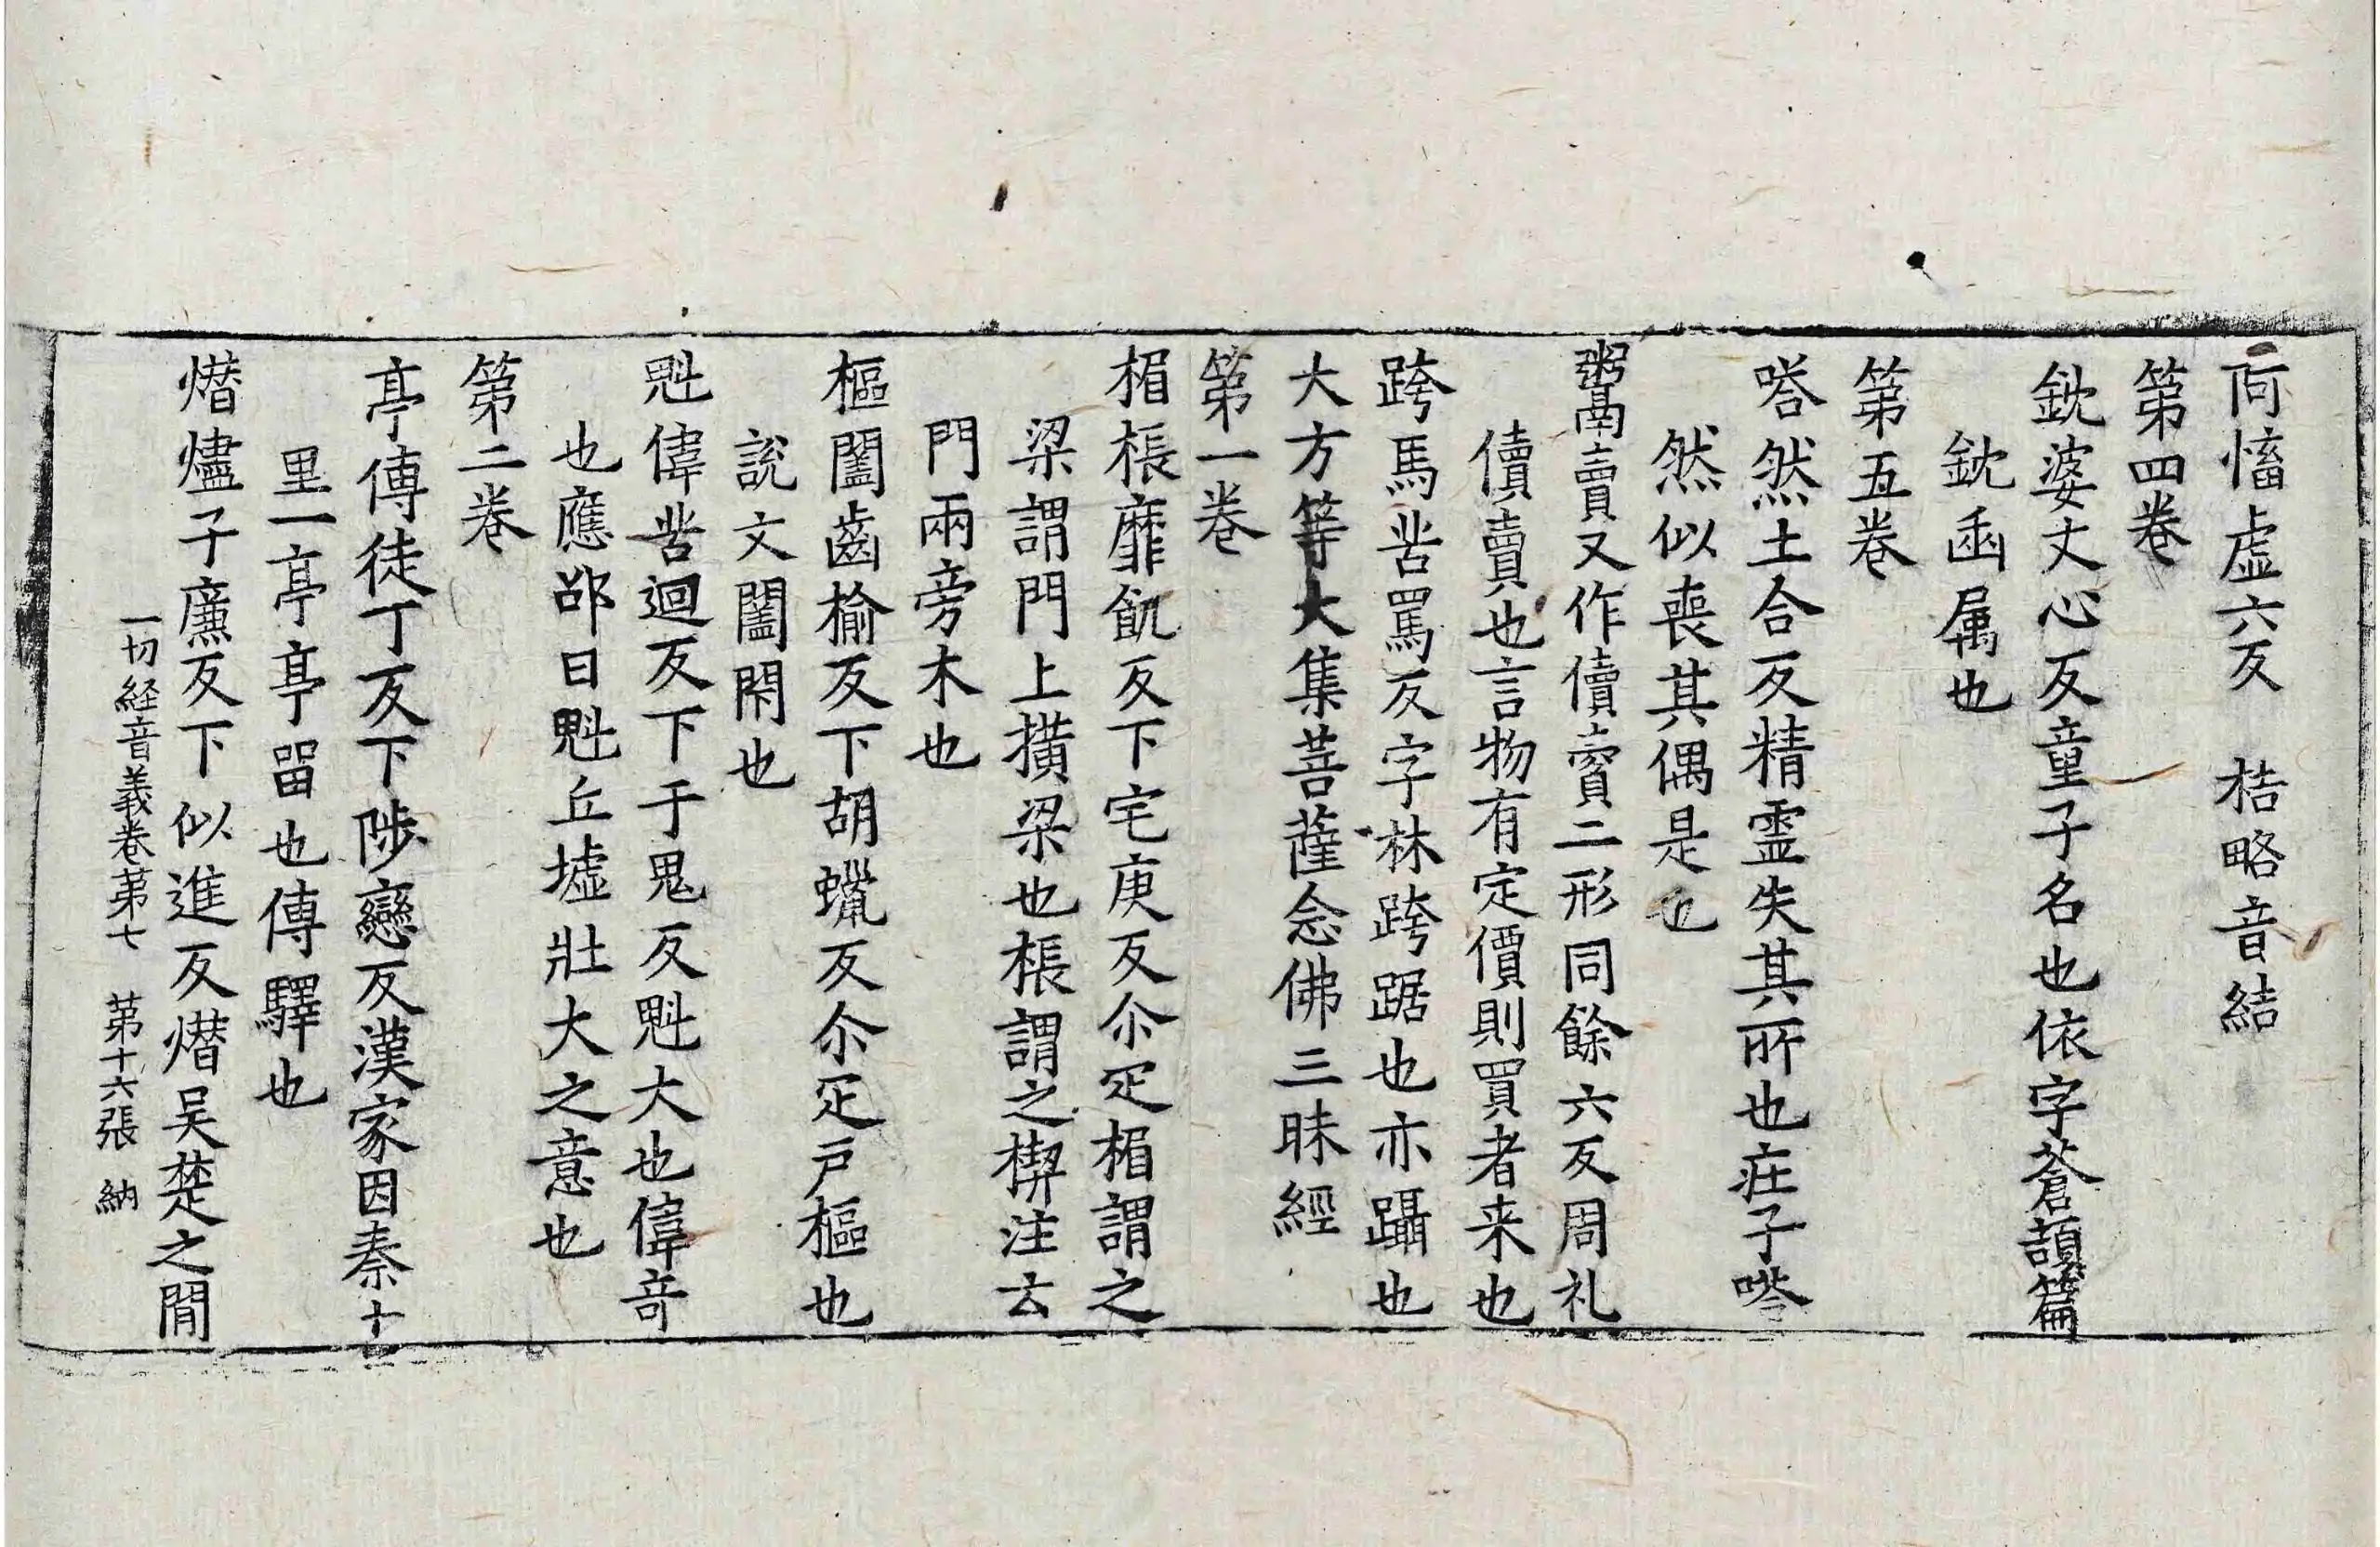 㐰慉虛六反　桔略音結
第四卷
鈂婆丈心反童子名也依字蒼頡篇
鈂臿属也
第五卷
嗒然土合反精靈失其所也疘子嗒
然似喪其偶是也
鬻賣又作儥𧶠二形同餘六反周礼
儥賣也言物有定價則買者来也
跨馬苦罵反字林跨踞也亦躡也
大方等大集菩薩念佛三昧經
第一卷
楣棖靡飢反下宅庚反尒疋楣謂之
梁謂門上撗梁也棖謂之楔注云
門兩旁木也
樞闔齒榆反下胡蠟反尒疋戸樞也
說文闔閇也
魁偉苦迴反下于鬼反魁大也偉竒
也應邵曰魁丘墟壯大之意也
第二卷
亭傳徒丁反下陟戀反漢家因秦十
里一亭亭畱也傳驛也
熸燼子廉反下似進反熸吴楚之閒
一切経音義卷苐七　苐十六張　納